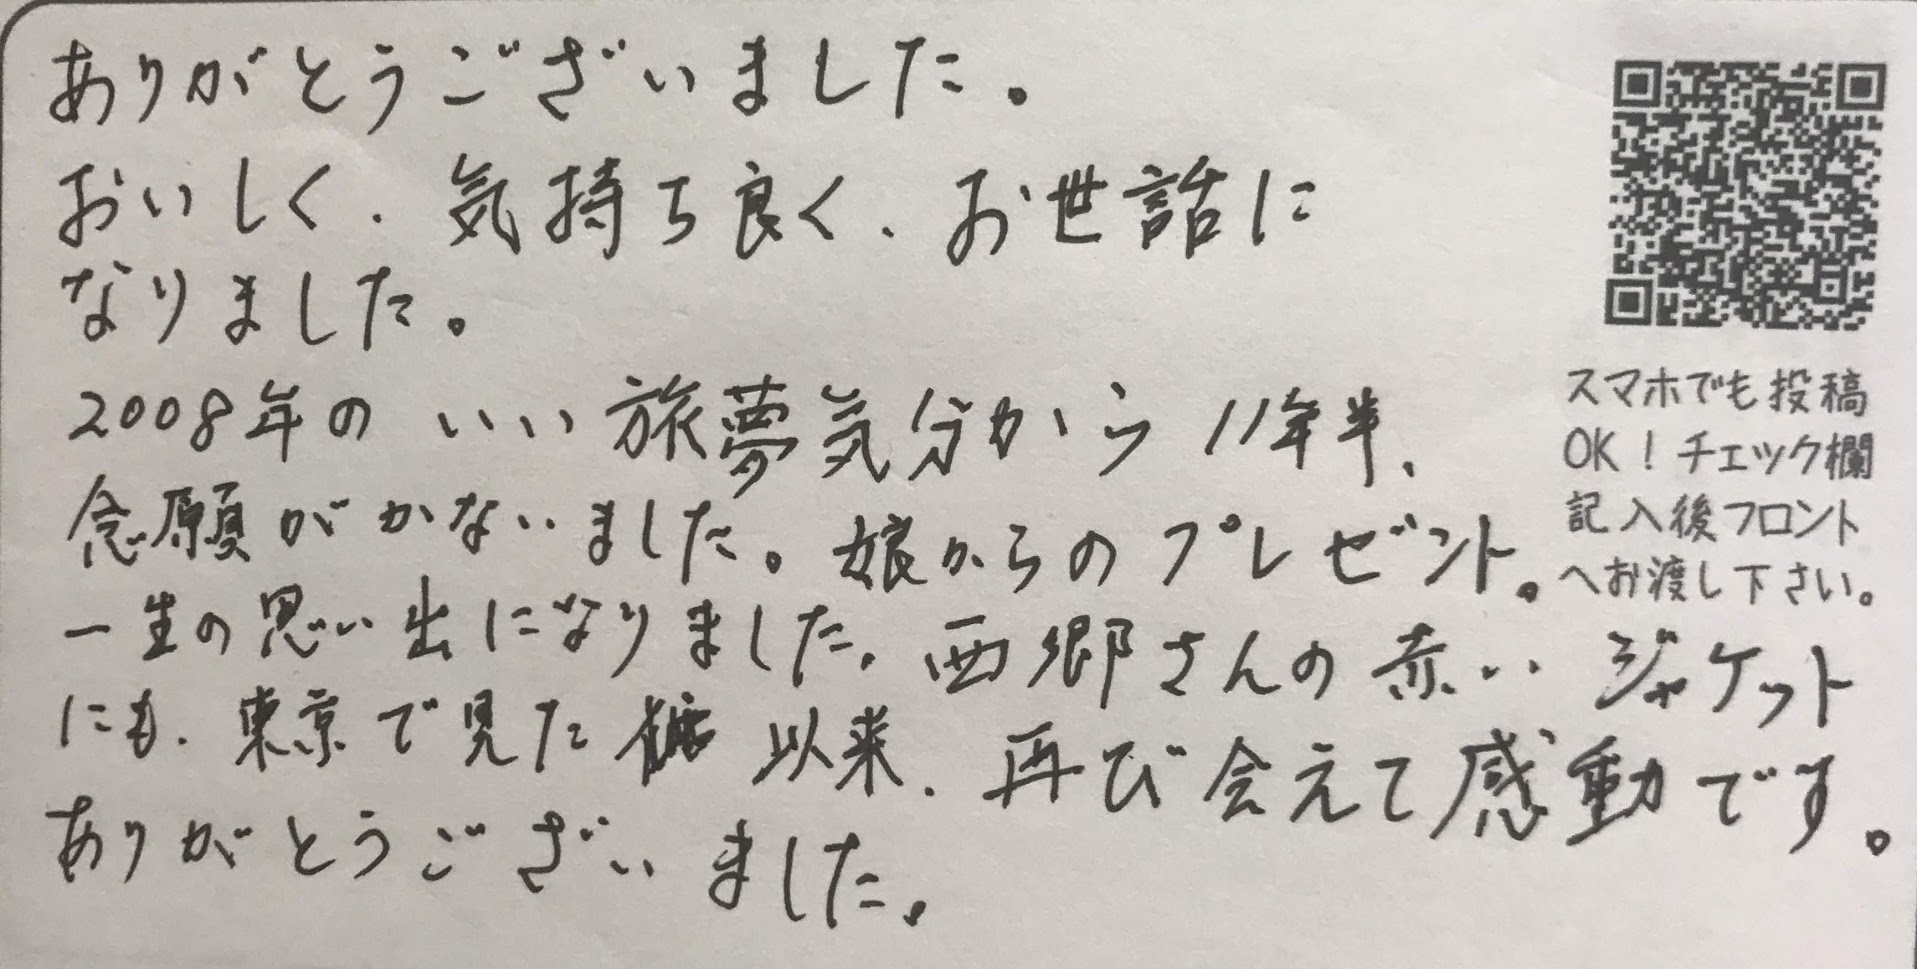 ありがとうございました。
おいしく、気持ち良く、お世話に
なりました。
2008年の いい旅夢気分から 11年半、
念願がかないました。娘からのプレゼント。
一生の思い出になりました。西郷さんの赤い ジャケット
にも、東京で見た 以来、再び会えて感動です。
ありがとうございました。
スマホでも投稿
OK！チェック欄
記入後フロント
へお渡し下さい。